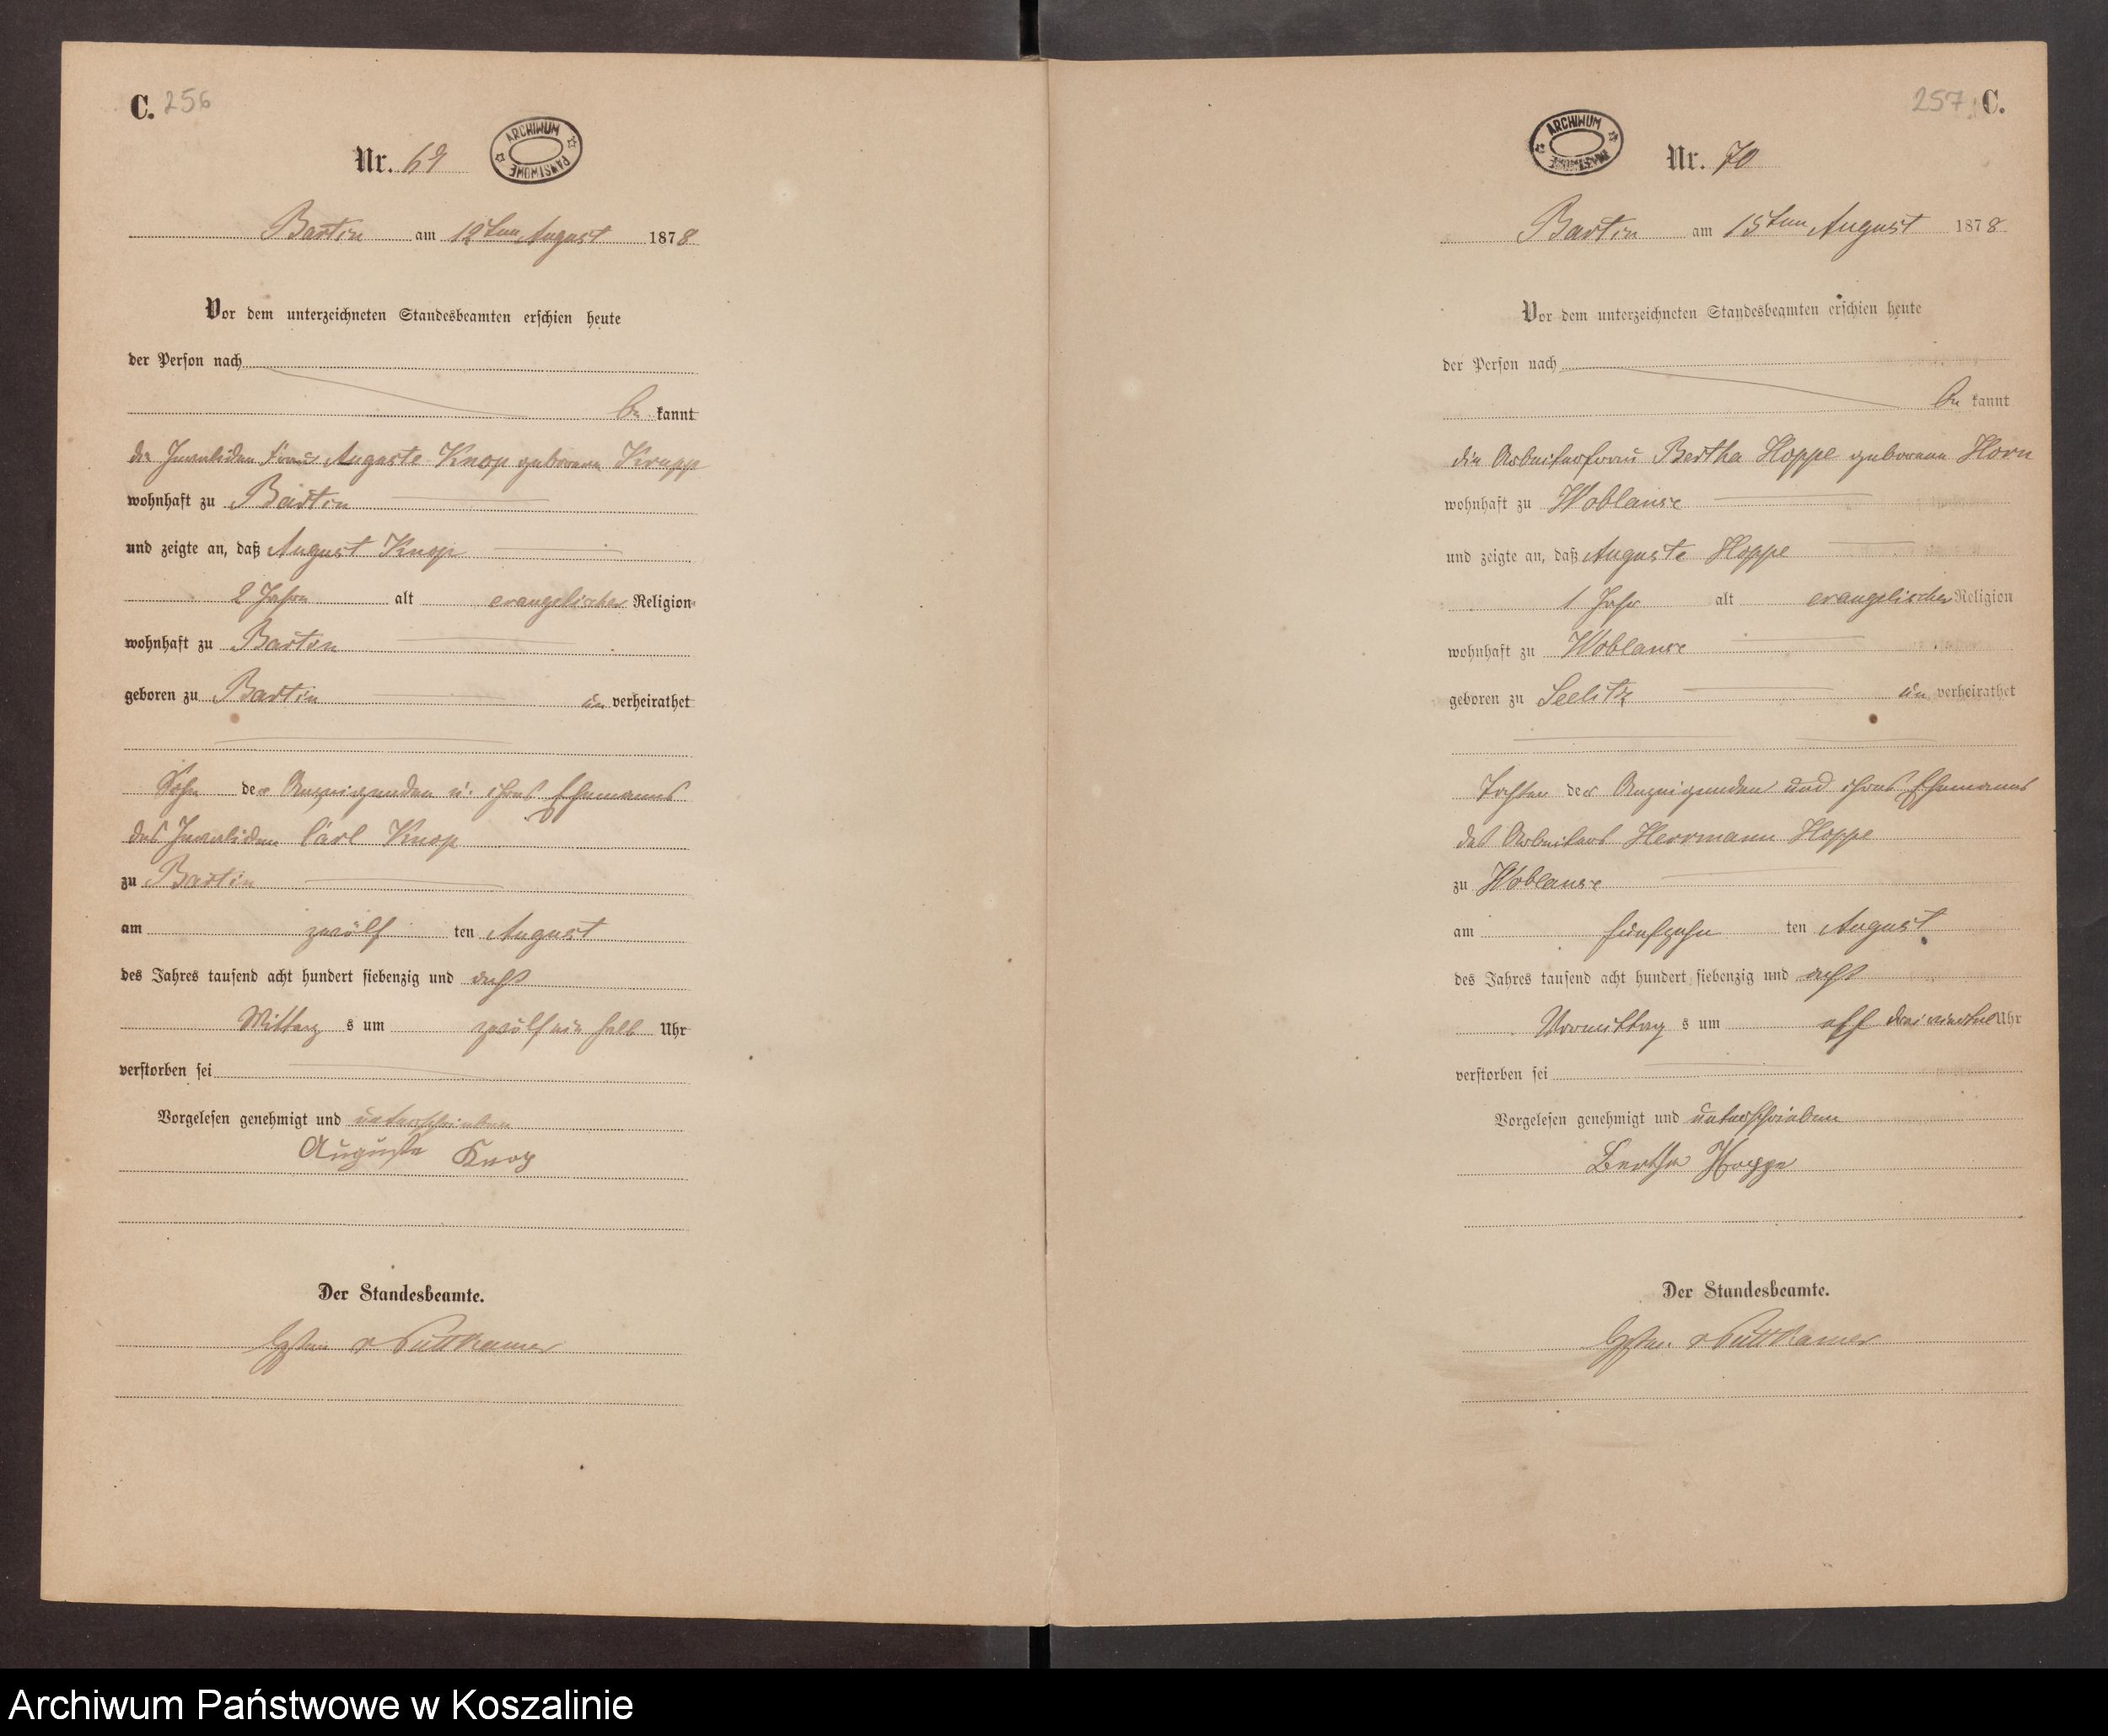 C. 256
Nr. 69
ARCHIWUM PAŃSTWOWE
Bartin am 12ten August 1878
Vor dem unterzeichneten Standesbeamten erschien heute
der Person nach
be kannt
die Invaliden Frau Auguste Knop geborene Krupp
wohnhaft zu Bartin
und zeigte an, daß August Knop
2 Jahre alt evangelischer Religion
wohnhaft zu Bartin
geboren zu Bartin un verheirathet
Sohn der Anzeigenden u. ihres Ehemannes
des Invaliden Carl Knop
zu Bartin
am zwölf ten August
des Jahres tausend acht hundert siebenzig und acht
Mittag s um zwölf ein halb Uhr
verstorben sei
Vorgelesen genehmigt und unterschrieben
Auguste Knop
Der Standesbeamte.
v Puttkamer
257 C.
ARCHIWUM PAŃSTWOWE
Nr. 70
Bartin am 15ten August 1878
Vor dem unterzeichneten Standesbeamten erschien heute
der Person nach
be kannt
die Arbeiterfrau Bertha Hoppe geborene Horn
wohnhaft zu Woblanse
und zeigte an, daß Auguste Hoppe
1 Jahr alt evangelischer Religion
wohnhaft zu Woblanse
geboren zu Seelitz un verheirathet
Tochter der Anzeigenden und ihres Ehemannes
des Arbeiters Herrmann Hoppe
zu Woblanse
am fünfzehn ten August
des Jahres tausend acht hundert siebenzig und acht
Vormittag s um elf drei viertel Uhr
verstorben sei
Vorgelesen genehmigt und unterschrieben
Bertha Hoppe
Der Standesbeamte.
v Puttkamer
Archiwum Państwowe w Koszalinie